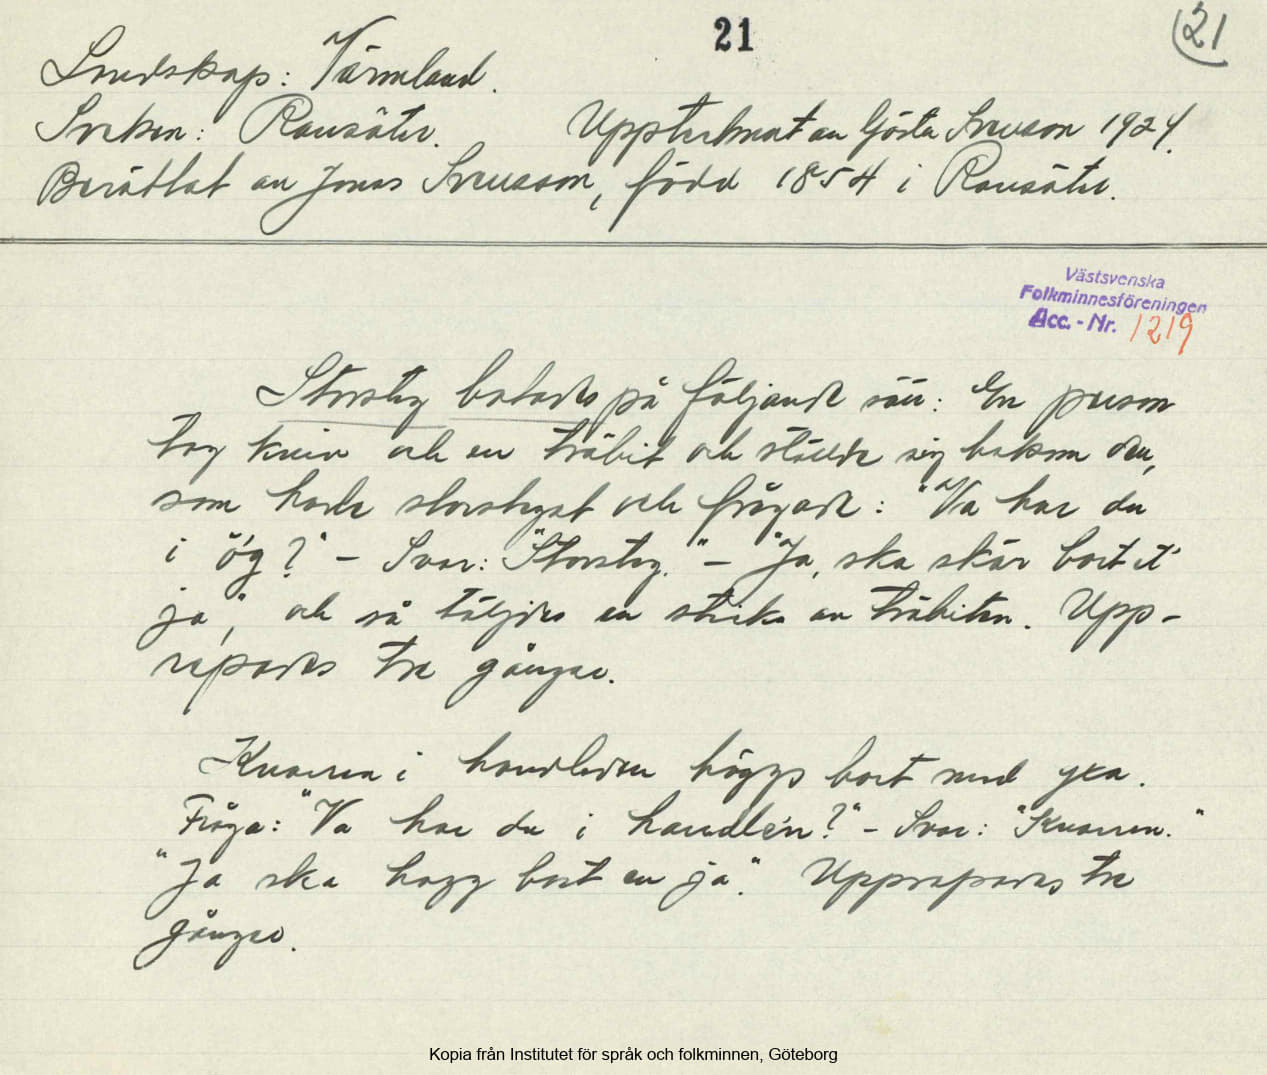 21
21
Landskap: Värmland.
Socken: Ransäter. Upptecknat av Gösta Svensson 1924.
Berättat av Jonas Svensson, född 1854 i Ransäter.
Västsvenska
Folkminnesföreningen
Acc.-Nr. 1219
Storstyg botades på följande sätt: En person
tog kniv och en träbit och ställde sig bakom den,
som hade storstyget och frågade: "Va har du
i ög?" – Svar: "Storstyg." – "Ja, ska skär bort et
ja", och så täljdes en sticka av träbiten. Upp-
repades tre gånger.
Knarren i handleden höggs bort med yxa.
Fråga: "Va har du i handle'n?" – Svar: "Knarren."
"Ja ska hogg bort en ja". Upprepades tre
gånger.
Kopia från Institutet för språk och folkminnen, Göteborg